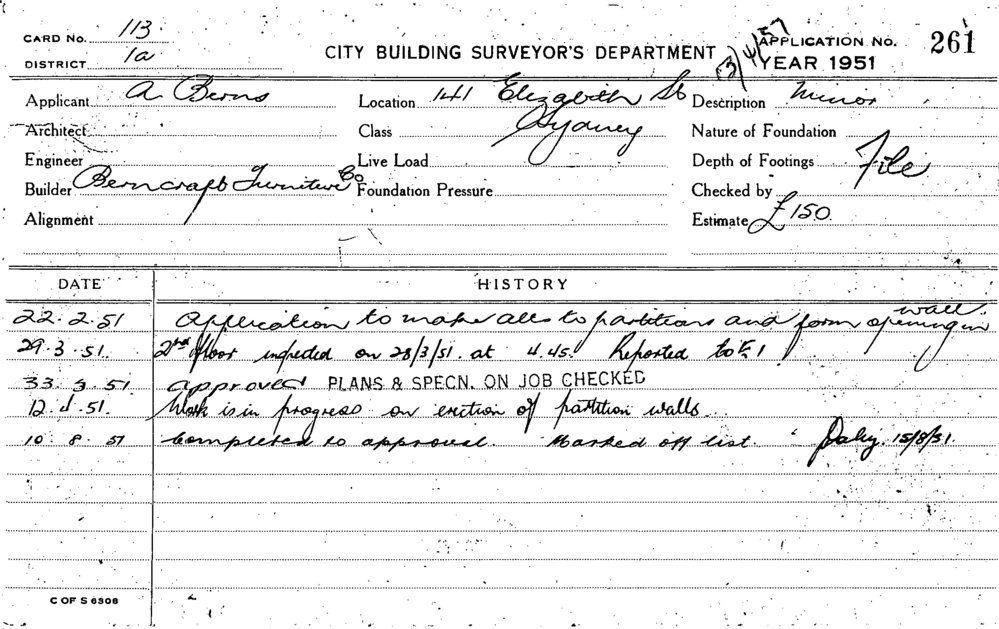 CARD No. 113.
DISTRICT 1a
CITY BUILDING SURVEYOR'S DEPARTMENT
APPLICATION No. 261
YEAR 1951
Applicant A Berns
Location 141 Elizabeth St
Description Minor
Architect
Class Sydney
Nature of Foundation
Engineer
Live Load
Depth of Footings File
Builder Berncraft Furniture Co
Foundation Pressure
Checked by
Alignment
Estimate £150.
DATE HISTORY
22.2.51 Application to make alts to partitions and form opening in wall.
29.3.51. 2nd floor inspected on 28/3/51. at 4.45. Reported
51. approved PLANS & SPECN. ON JOB CHECKED
12.4.51. Work is in progress on erection of partition walls.
10.8.51 Completed to approval. Marked off list. Daly. 15/8/51.
C OF S 6308